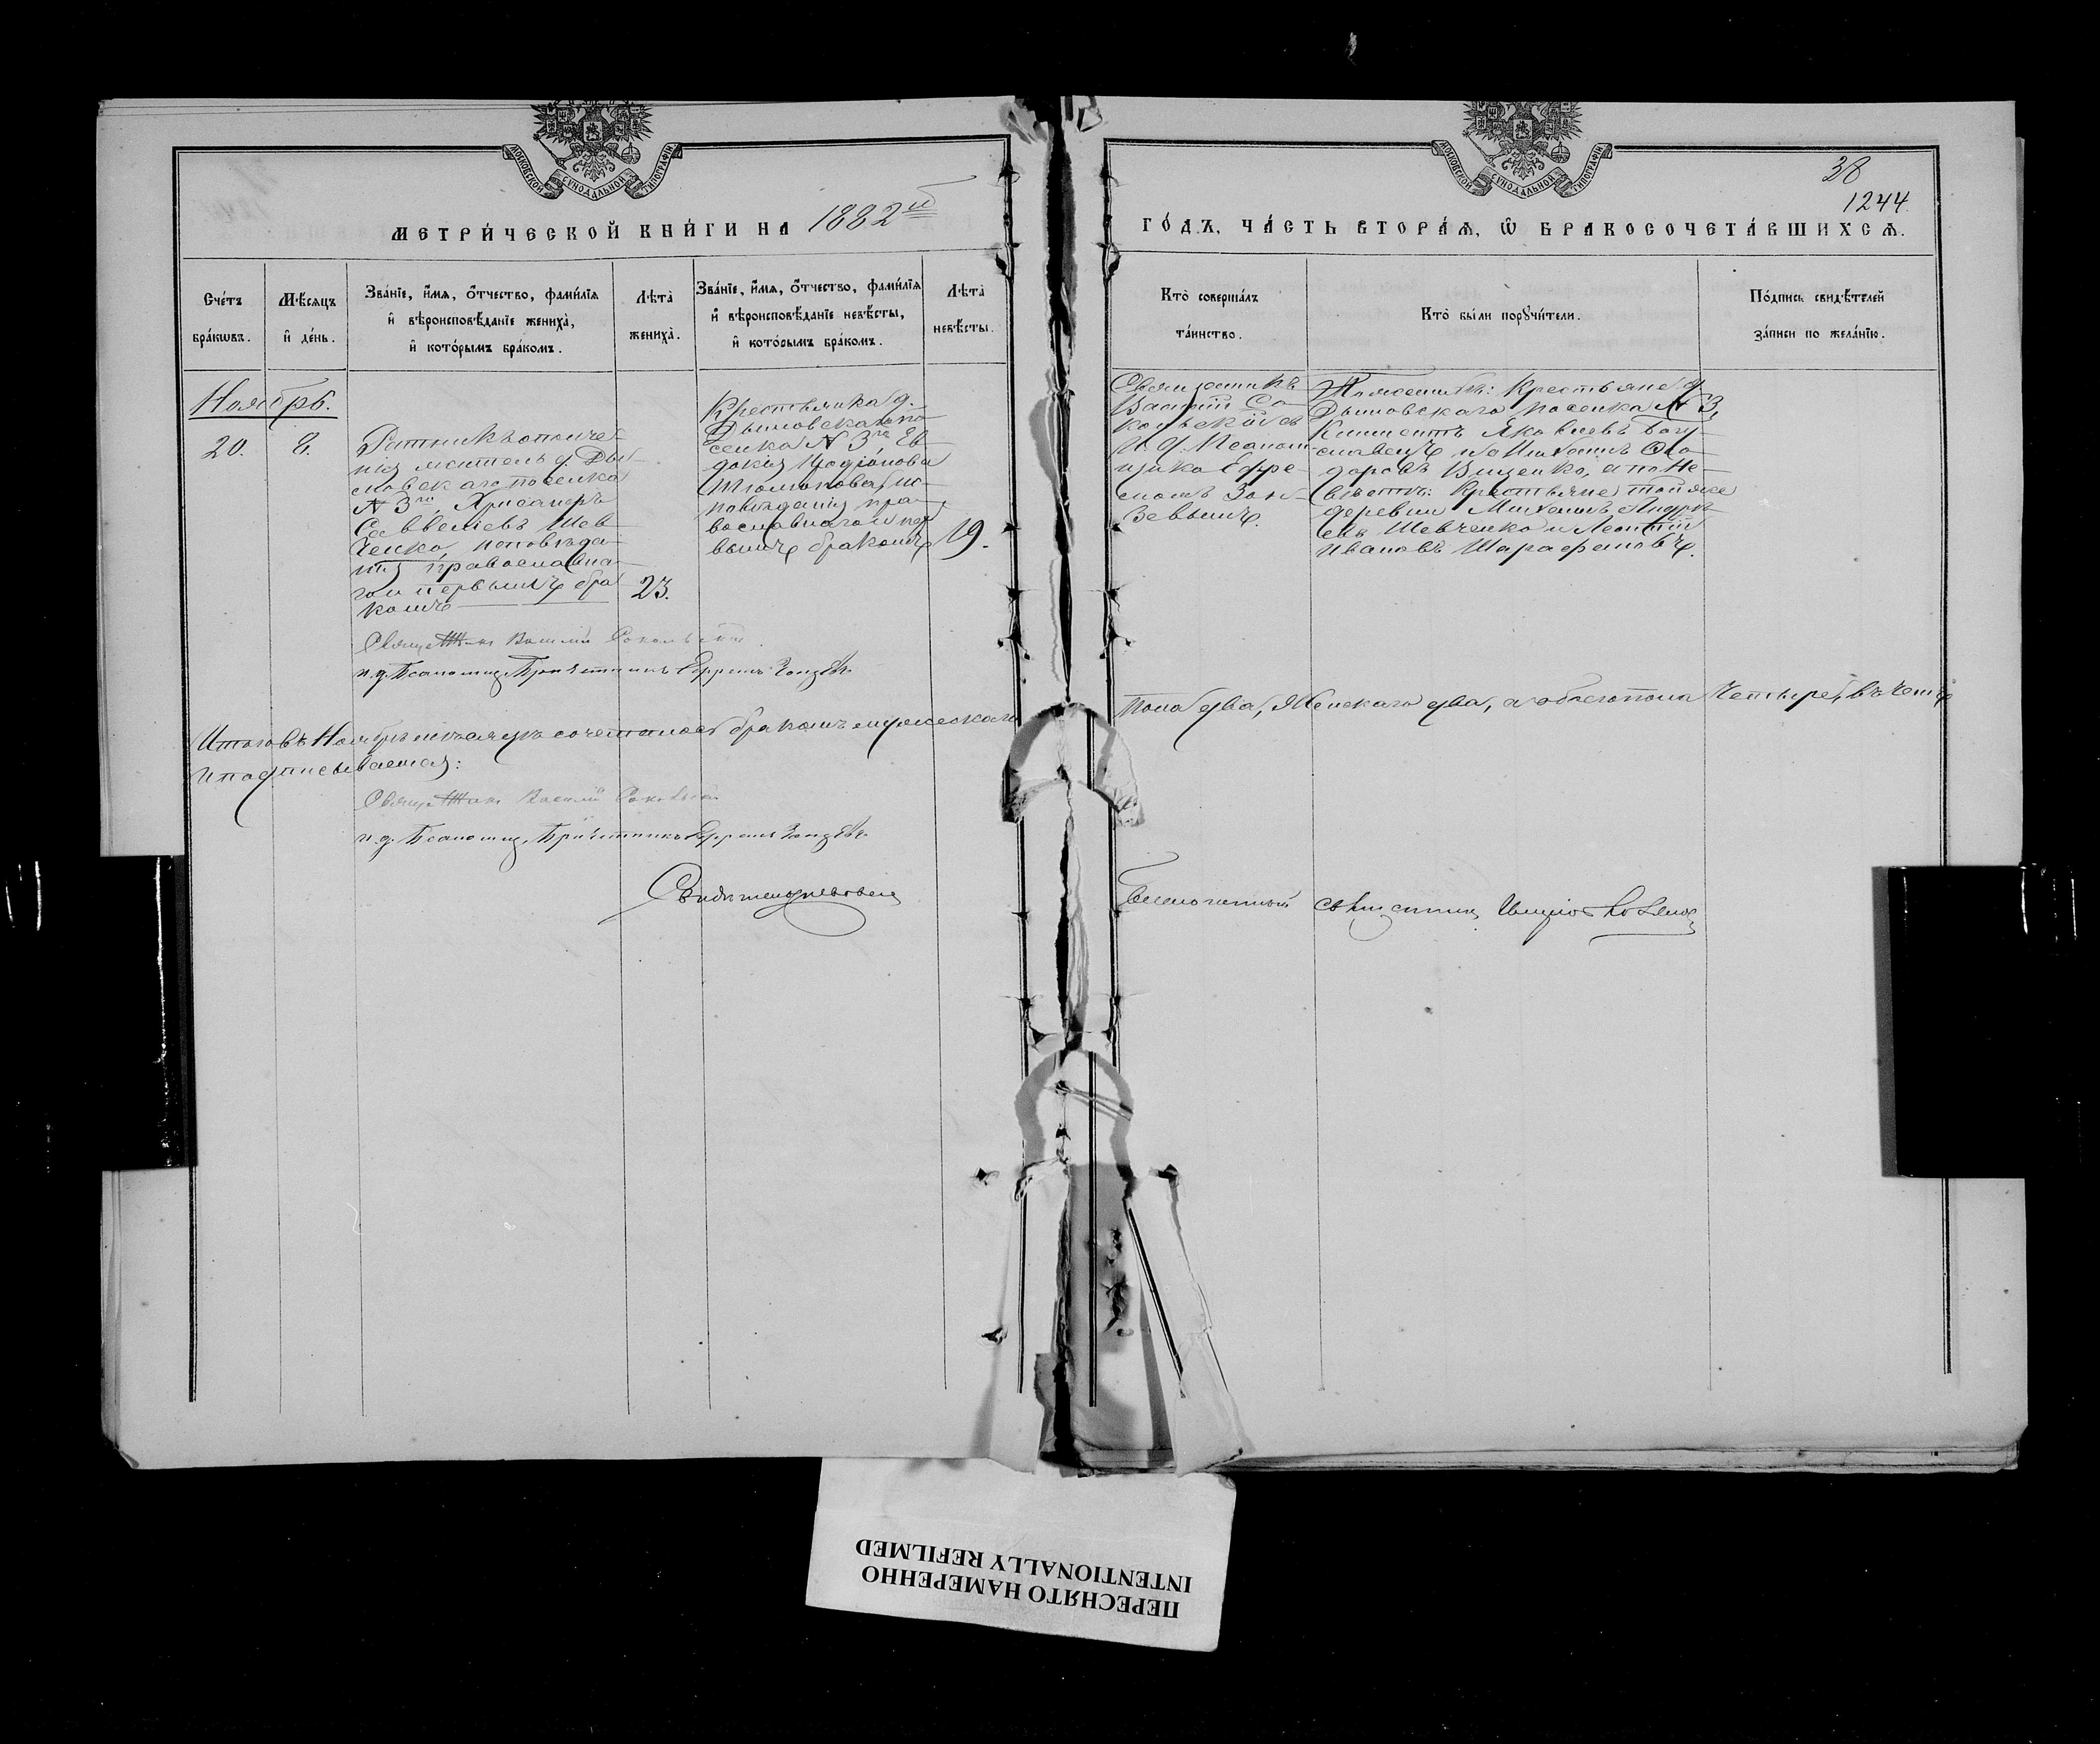 МОСКОВСКОЙ СѴНОДАЛЬНОЙ ТИПОГРАФІИ
МЕТРИ́ЧЕСКОЙ КНИ́ГИ НА 1882й
Сче́тъ бра́кѡвъ.
Мѣ́сяцъ и҆ де́нь.
Зва́нїе, и҆́мѧ, ѻ҆́тчество, фами́лїѧ
и҆ вѣроисповѣ́данїе жениха̀,
и҆ кото́рымъ бра́комъ.
Лѣта̀ жениха̀.
Зва́нїе, и҆́мѧ, ѻ҆́тчество, фами́лїѧ
и҆ вѣроисповѣ́данїе невѣ́сты,
и҆ кото́рымъ бра́комъ.
Лѣта̀ невѣ́сты.
Ноябрь.
20.
8.
Ратникъ ополче-
нія житель д. Ды-
мовскаго поселка
№ 3го, Хрисанфъ
Савеліевъ Шев-
ченко, исповѣда-
нія православна-
го и первымъ бра-
комъ
23.
Крестьянка д.
Дымовскаго по-
селка № 3го Ев-
докія Иродіонова
исповѣданія пра-
вославнаго и пер-
вымъ бракомъ
19.
Василій Сокольскій
и.д. Псаломщ. Причетникъ Ефремъ
Итого въ Ноябрѣ мѣсяцѣ сочеталось бракомъ мужескаго
и подписываемся:
Василій Сокольскій
и.д. Псаломщ. Причетникъ Ефремъ
МОСКОВСКОЙ СѴНОДАЛЬНОЙ ТИПОГРАФІИ
38
1244.
ГО́ДЪ, ЧА́СТЬ ВТОРА́Ѧ, Ѡ҆ БРАКОСОЧЕТА́ВШИХСѦ.
Кто̀ соверша́лъ
та́инство.
Кто̀ бы́ли порꙋчи́тели.
По́дпись свидѣ́телей
за́писи по жела́нїю.
Священникъ
Василій Со-
кольскій съ
и. д. Псалом-
щика Ефре-
момъ
По женихѣ: Крестьяне д.
Дымовскаго поселка № 3,
Климентъ Яковлевъ Богу-
славецъ и Михаилъ Ѳео-
доровъ Виценко, а по не-
вѣстѣ: Крестьяне той же
деревни Михаилъ Андре-
евъ Шевченко и Леонтій
Ивановъ Шарафановъ.
пола два, Женскаго два, а обоего пола Четыре, въ чемъ
ПЕРЕСНЯТО НАМЕРЕННО
INTENTIONALLY REFILMED